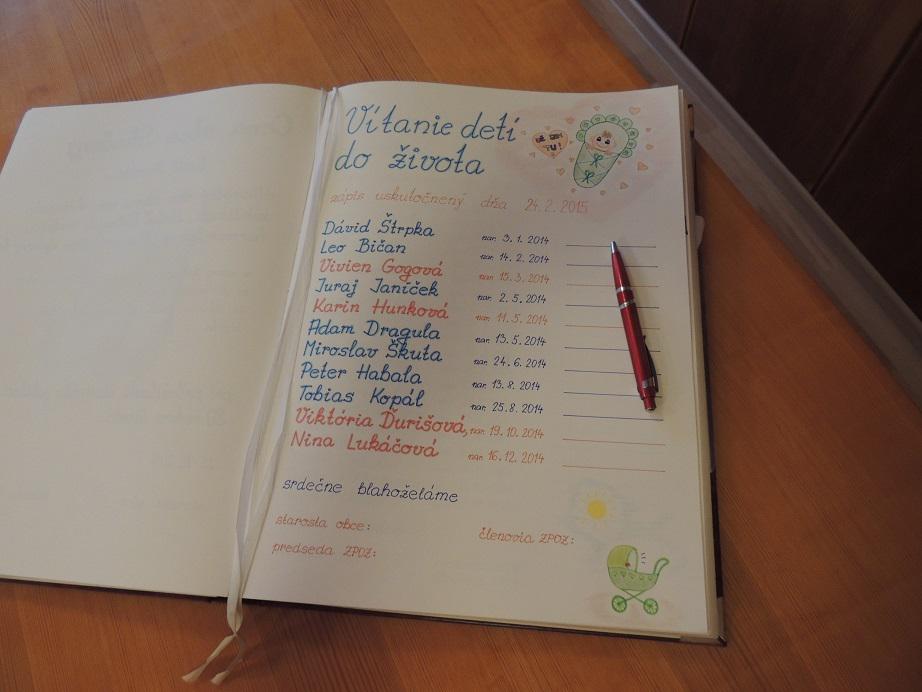 Vítanie detí
do života
zápis uskutočnený dňa 24.2.2015
Dávid Štrpka nar. 3.1.2014
Leo Bičan nar. 14.2.2014
Vivien Gogová nar. 15.3.2014
Juraj Janíček nar. 2.5.2014
Karin Hunková nar. 11.5.2014
Adam Dragula nar. 13.5.2014
Miroslav Škuta nar. 24.6.2014
Peter Habala nar. 13.8.2014
Tobias Kopál nar. 25.8.2014
Viktória Ďurišová, nar. 19.10.2014
Nina Lukáčová nar. 16.12.2014
srdečne blahoželáme
starosta obce:
členovia ZPOZ:
predseda ZPOZ: